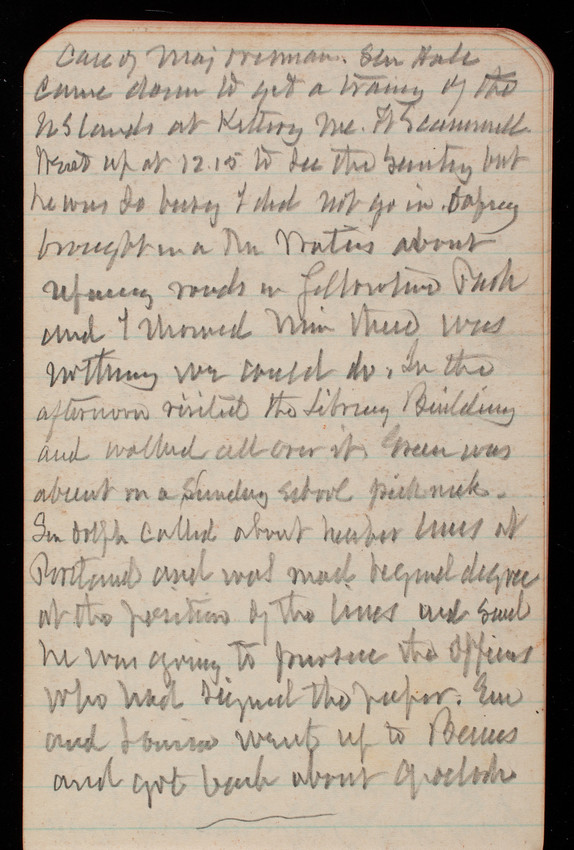 Case of Maj Overman. Sen Hale
came down to get a tracing of the
US lands at Kittery Me. Ft Scammell
Went up at 12.15 to see the Sec'try but
he was so busy I did not go in.
brought in a about
roads in Yellowstone Park
and I showed him there was
nothing we could do. In the
afternoon visited the Library Building
and walked all over it. Green was
absent on a Sunday School pick nick.
Sen Dolph called about harbor lines at
Portland and was mad beyond degree
at the position of the lines and said
he was going to pursue the Officers
who had signed the paper. Em
and Louisa went up to
and got back about 9 oclock